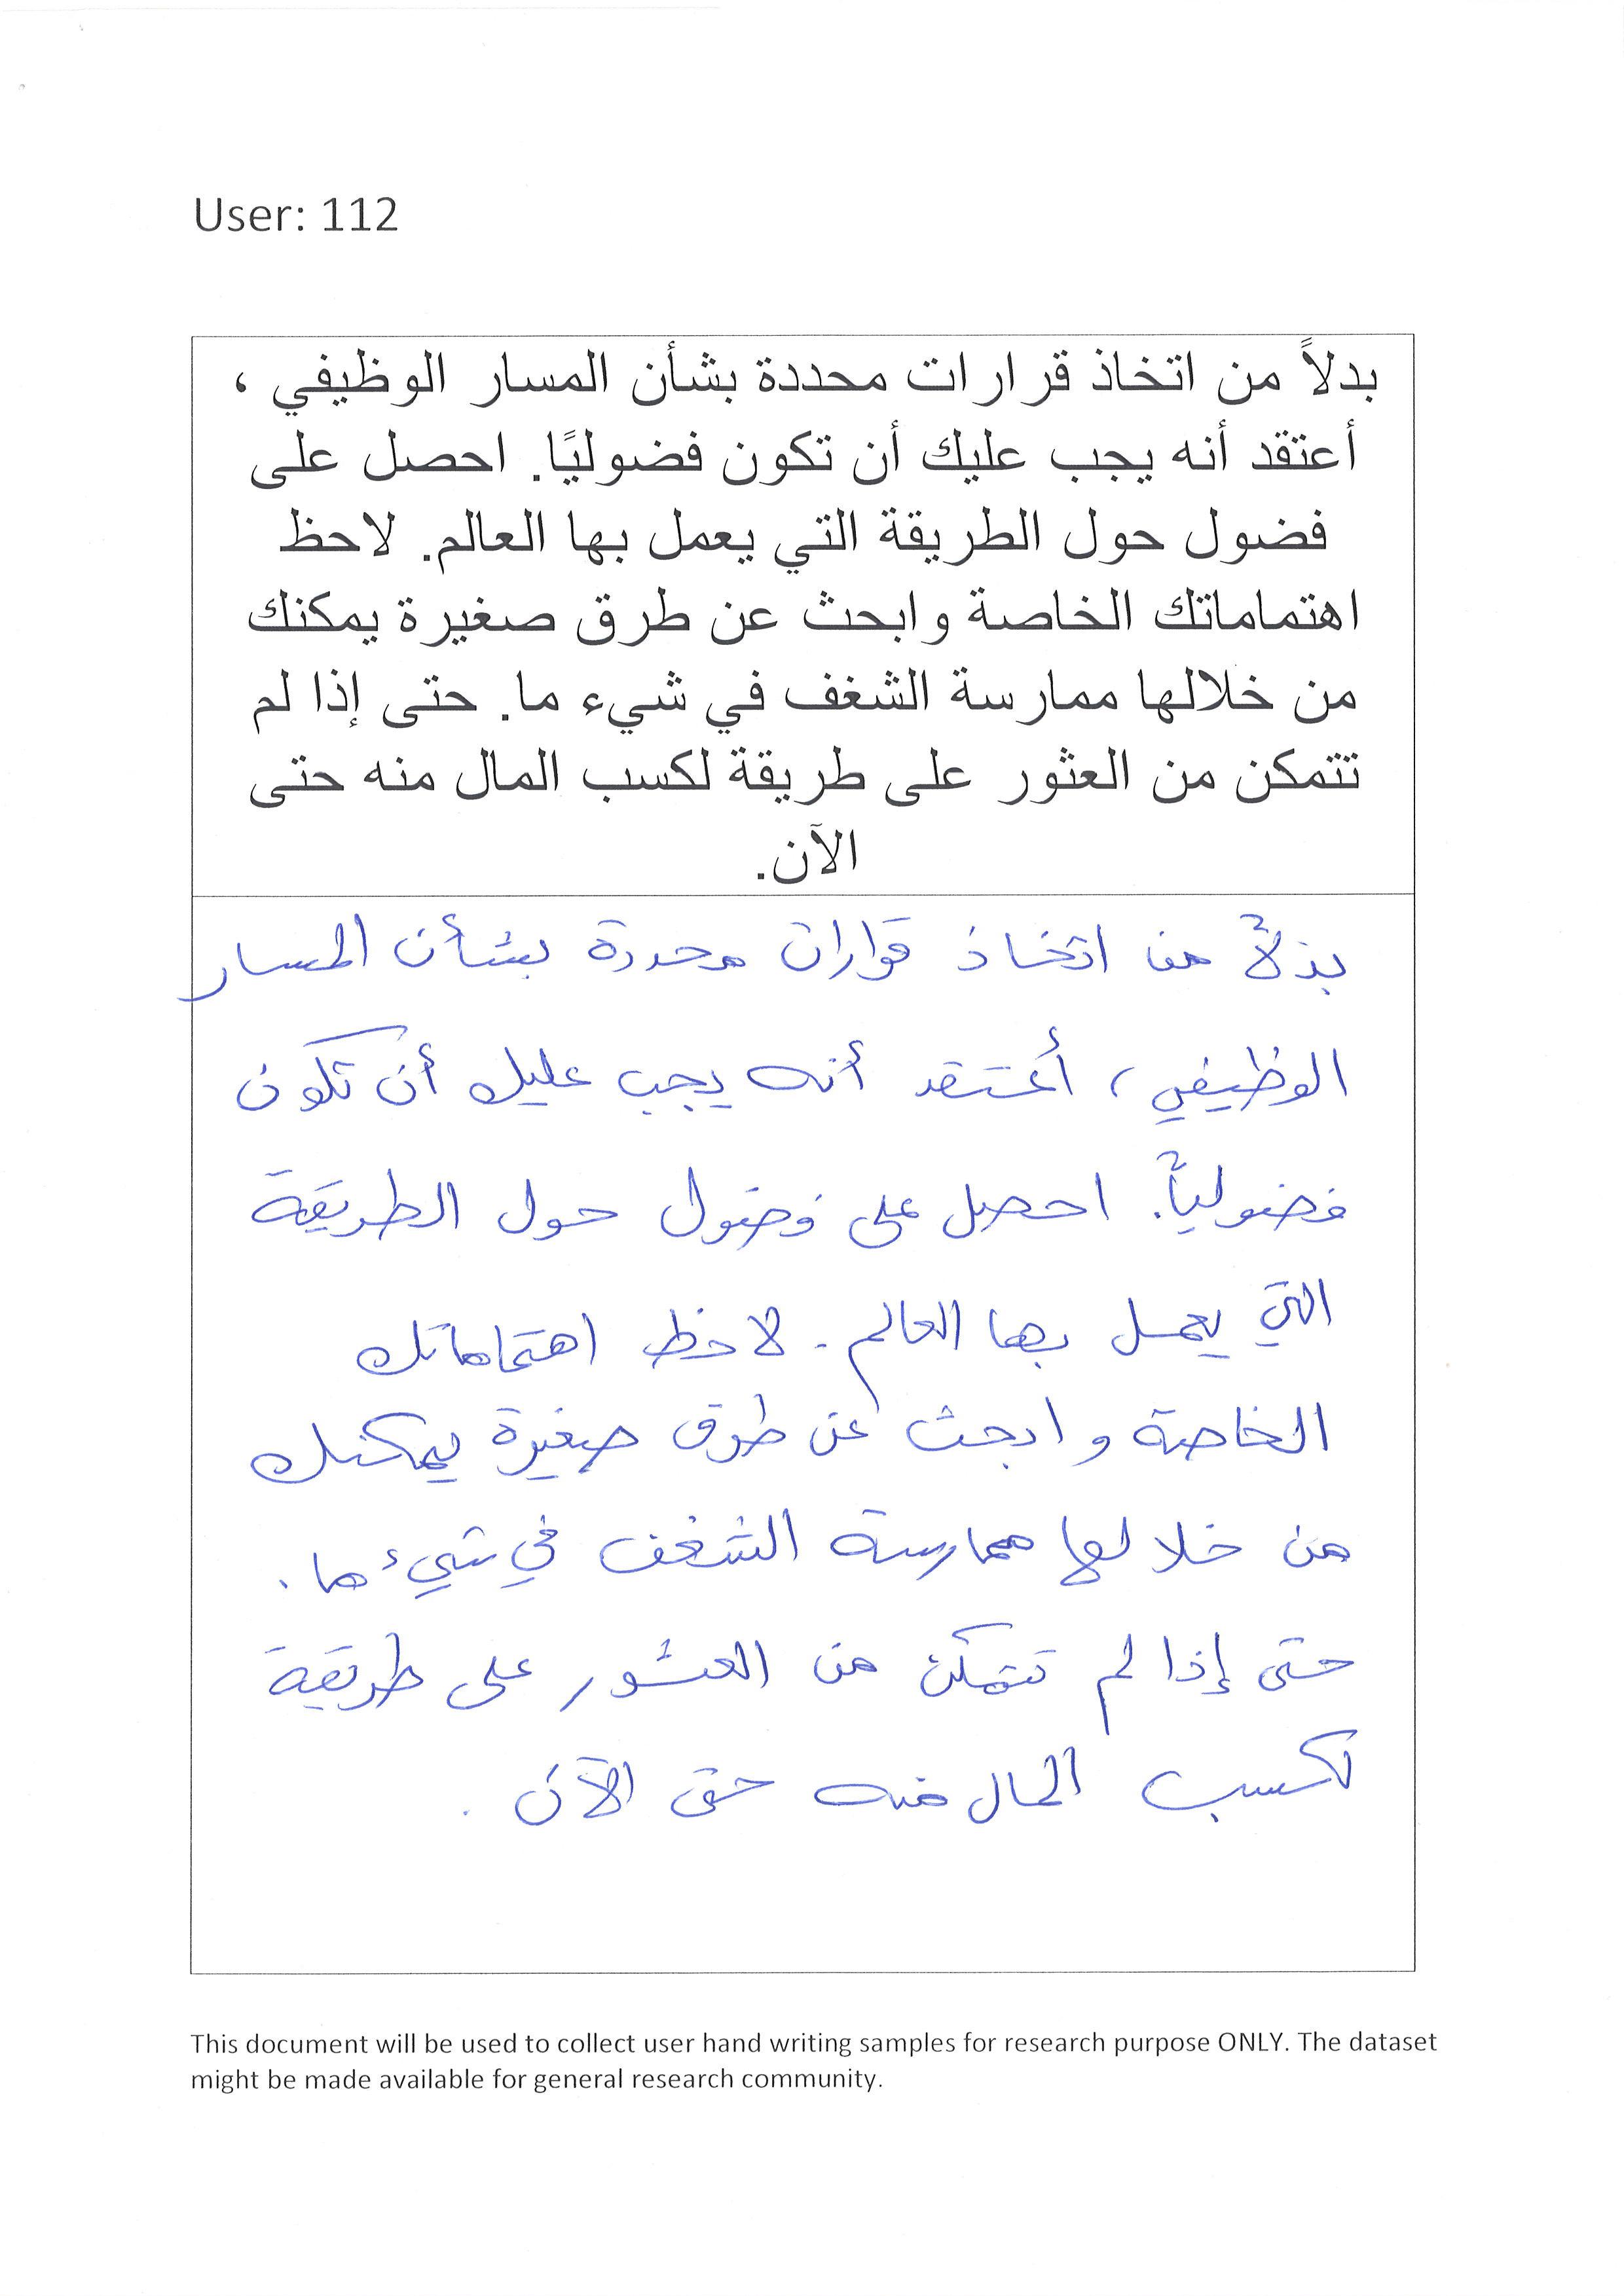 User: 112
بدلاً من اتخاذ قرارات محددة بشأن المسار الوظيفي ،
أعتقد أنه يجب عليك أن تكون فضوليًا. احصل على
فضول حول الطريقة التي يعمل بها العالم. لاحظ
اهتماماتك الخاصة وابحث عن طرق صغيرة يمكنك
من خلالها ممارسة الشغف في شيء ما. حتى إذا لم
تتمكن من العثور على طريقة لكسب المال منه حتى
الآن.
بذلاً من اتخاذ قرارات محددة بشأن المسار
الوظيفي، أعتقد أنه يجب عليك أن تكون
فضولياً. احصل على فضول حول الطريقة
التي يعمل بها العالم. لاحظ اهتماماتك
الخاصة وابحث عن طرق صغيرة يمكنك
من خلالها ممارسة الشغف في شيء ما.
حتى إذا لم تتمكن من العثور على طريقة
لكسب المال منه حتى الآن.
This document will be used to collect user hand writing samples for research purpose ONLY. The dataset
might be made available for general research community.